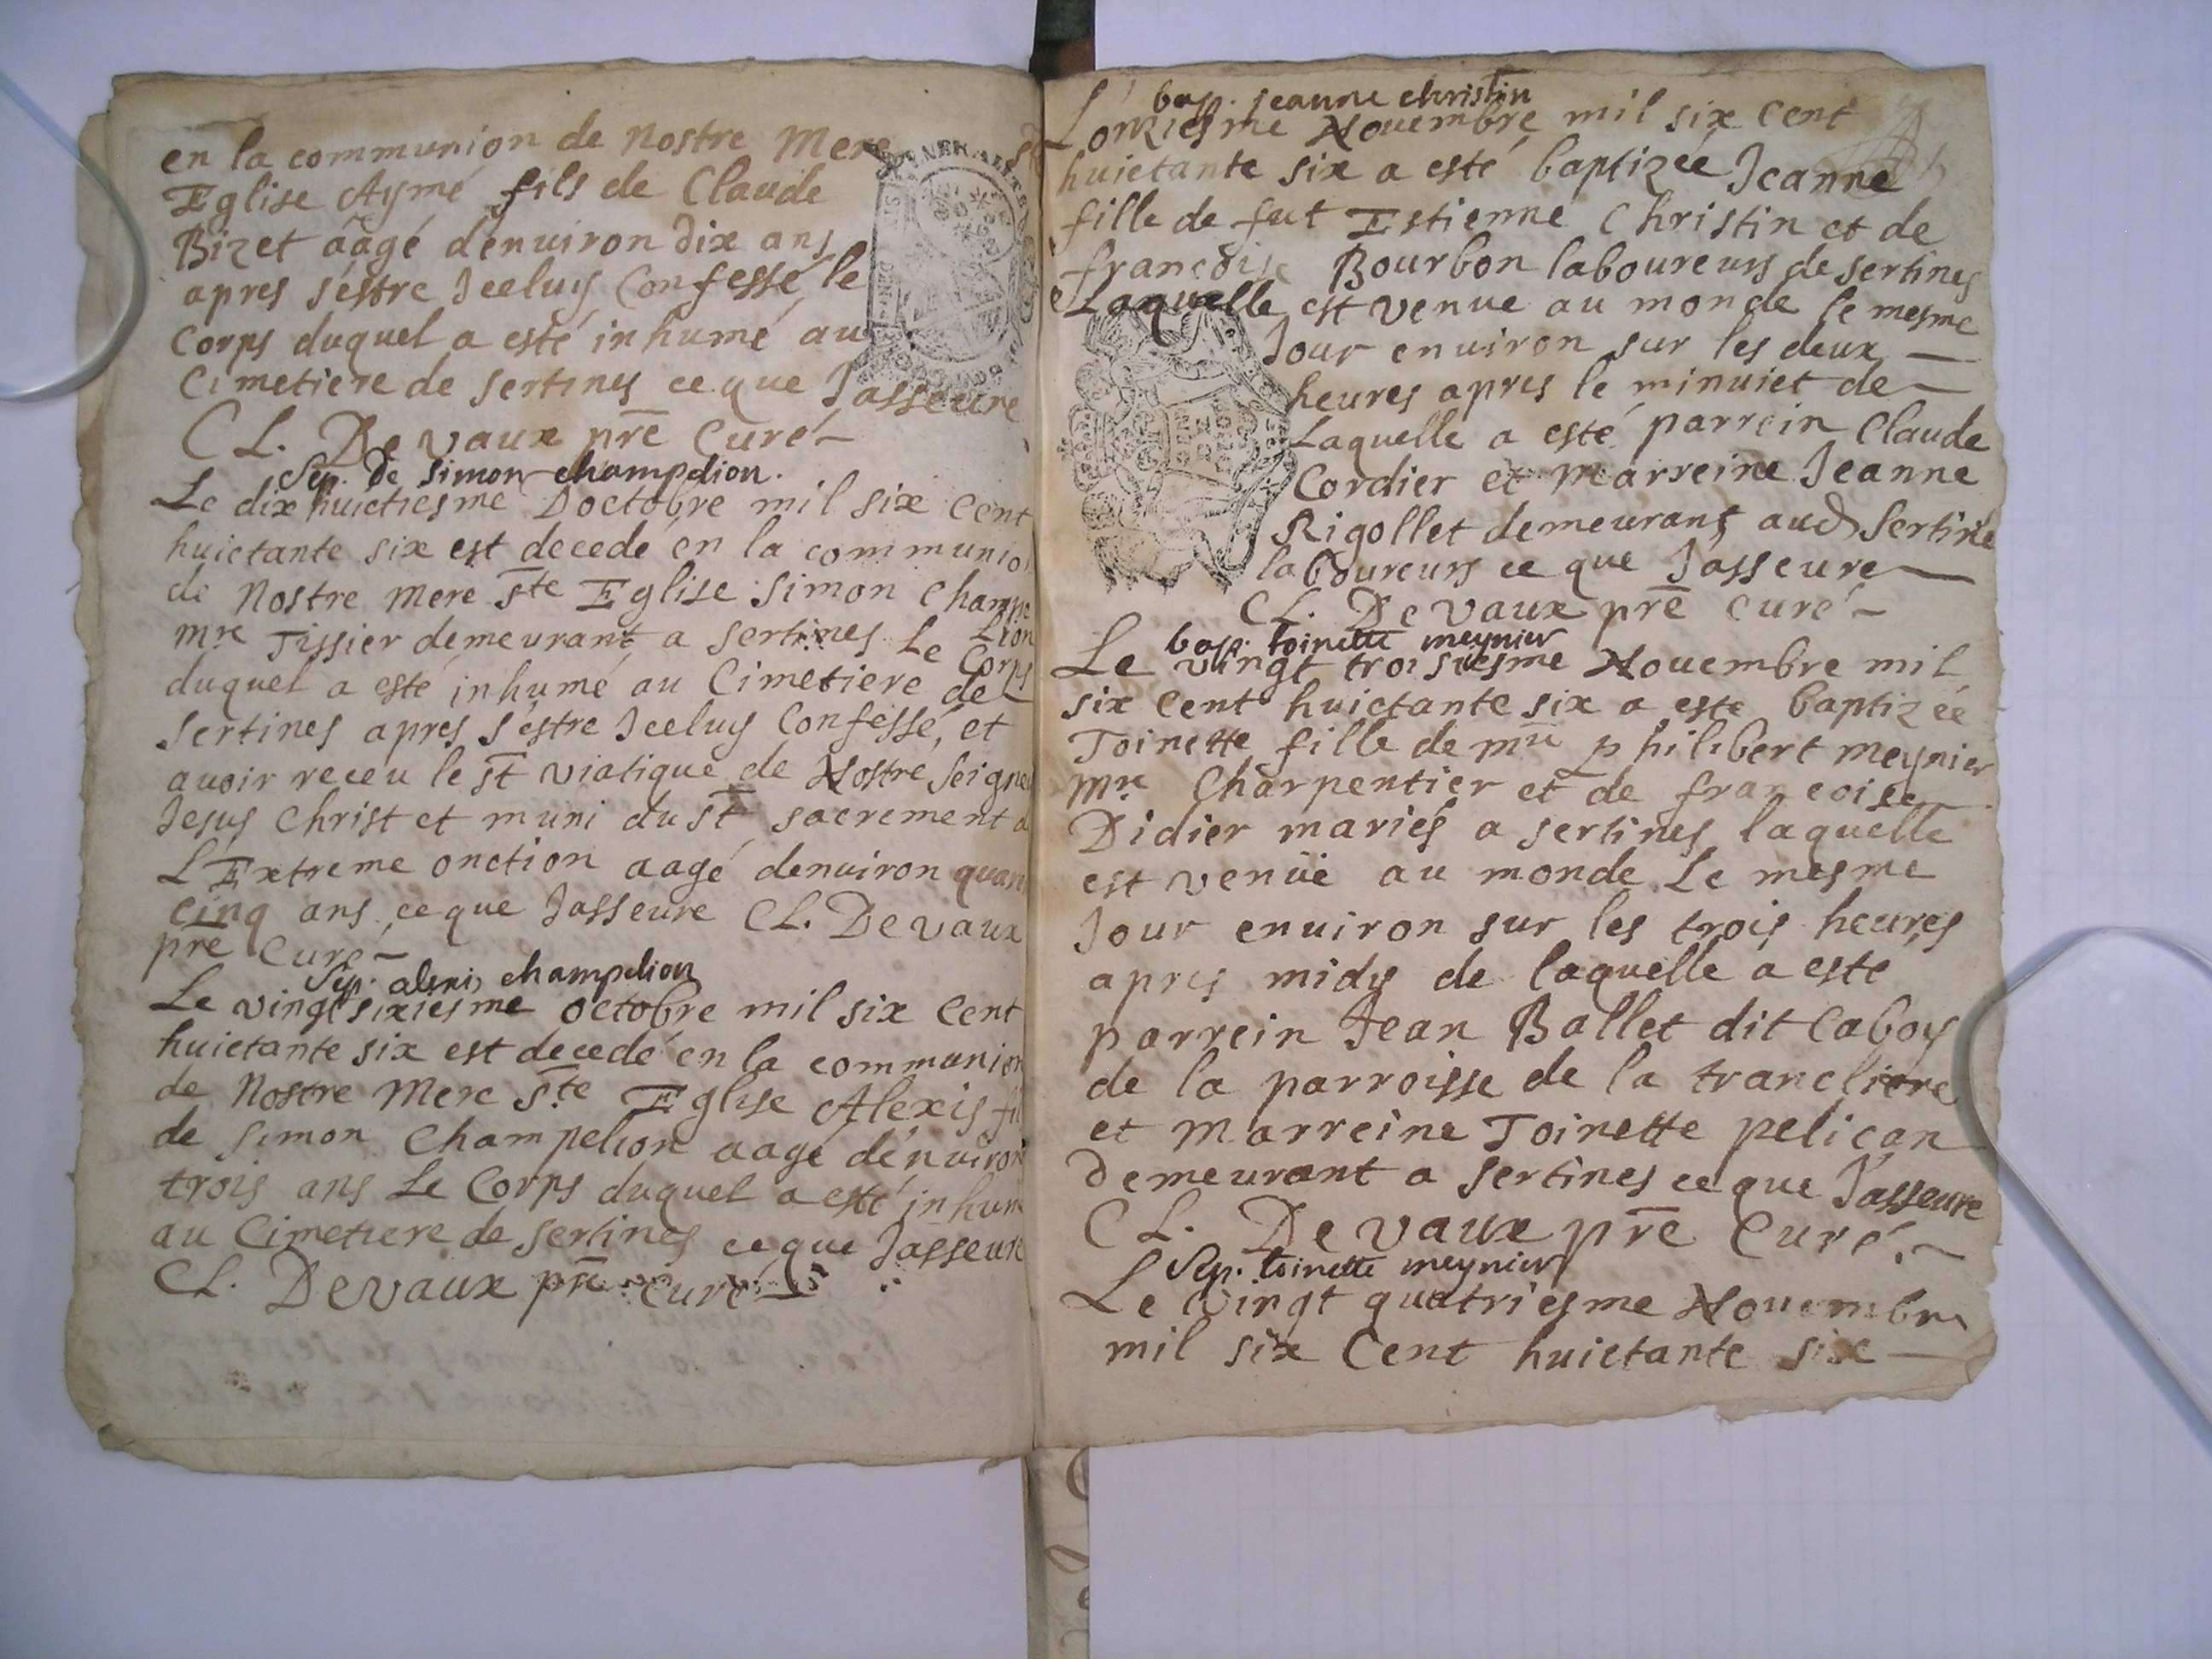 en la communion de Nostre Mere
Eglise Aymé fils de Claude
Bizet aagé denuiron dix ans
apres s'estre Jceluy Confessé le
Corps duquel a esté inhumé au
Cimetiere de Sertines ce que Jasseure
CL. Devaux pre Curé
Sep. de simon champelion.
Le dix huictiesme Doctobre mil six Cent
huictante six est decedé en la communio
de Nostre Mere Ste Eglise Simon Champe
Lion
mre Tissier demeurant a Sertines Le Corps
duquel a esté inhumé au Cimetiere de
Sertines apres s'estre Jceluy Confessé, et
auoir receu le st viatique de Nostre Seigne
Jesus Christ et muni du st sacrement d
L'Extreme onction aagé denuiron quar
cinq ans ce que Jasseure CL. Devaux
pre Curé
Sep. champelion
Le vingt sixiesme octobre mil six Cent
huictante six est decedé en la communion
de Nostre Mere Ste Eglise Alexis fil
de Simon Champelion aagé dénuiron
trois ans Le Corps duquel a esté inhum
au Cimetiere de Sertines ce que Jasseure
CL. Devaux pre Curé
bap. jeanne christin
L'onziesme Nouembre mil six Cent
huictante six a esté baptizée Jeanne
fille de fut Estienne Christin et de
francoise Bourbon laboureurs de Sertines
Laquelle est venue au monde le mesme
Jour enuiron sur les deux
heures apres le minuict de
Laquelle a esté parrein Claude
Cordier et Marreine Jeanne
Rigollet demeurant aud Sertine
laboureurs ce que Jasseure
CL. Devaux pre Curé
bap. toinette meynier
Le vingt troisiesme Nouembre mil
six Cent huictante six a este baptizée
Toinette fille de mre philibert meynier
mre Charpentier et de francoise
Didier mariés a Sertines laquelle
est venüe au monde Le mesme
Jour enuiron sur les trois heures
apres midy de laquelle a esté
parrein Jean Ballet dit Caboy
de la parroisse de la trancliere
et Marreine Toinette pelican
demeurant a Sertines ce que Jasseure
CL. Devaux pre Curé.
Sep. toinette meynier
Le vingt quatriesme Nouembre
mil six Cent huictante six